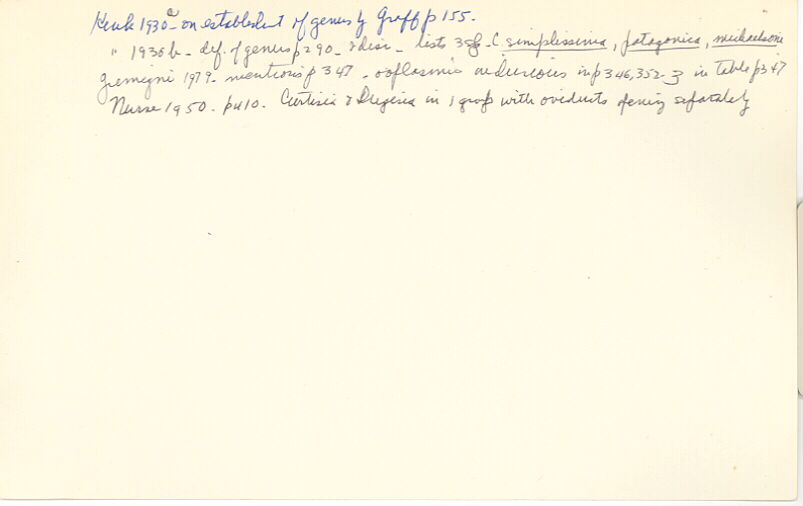 Kenk 1930a - on establishment of genus by Graff p 155.
" 1930b - def. of genus p 290 - & disc - lists 3 sp - C. simplissima, patagonica, michaelseni
Gremigni 1979 - mentions p 347 - ooplasmic inclusions in p 346, 352-3 in table p 347
Nurse 1950 - p 410 - Curtisia & Dugesia in 1 group with oviducts opening separately